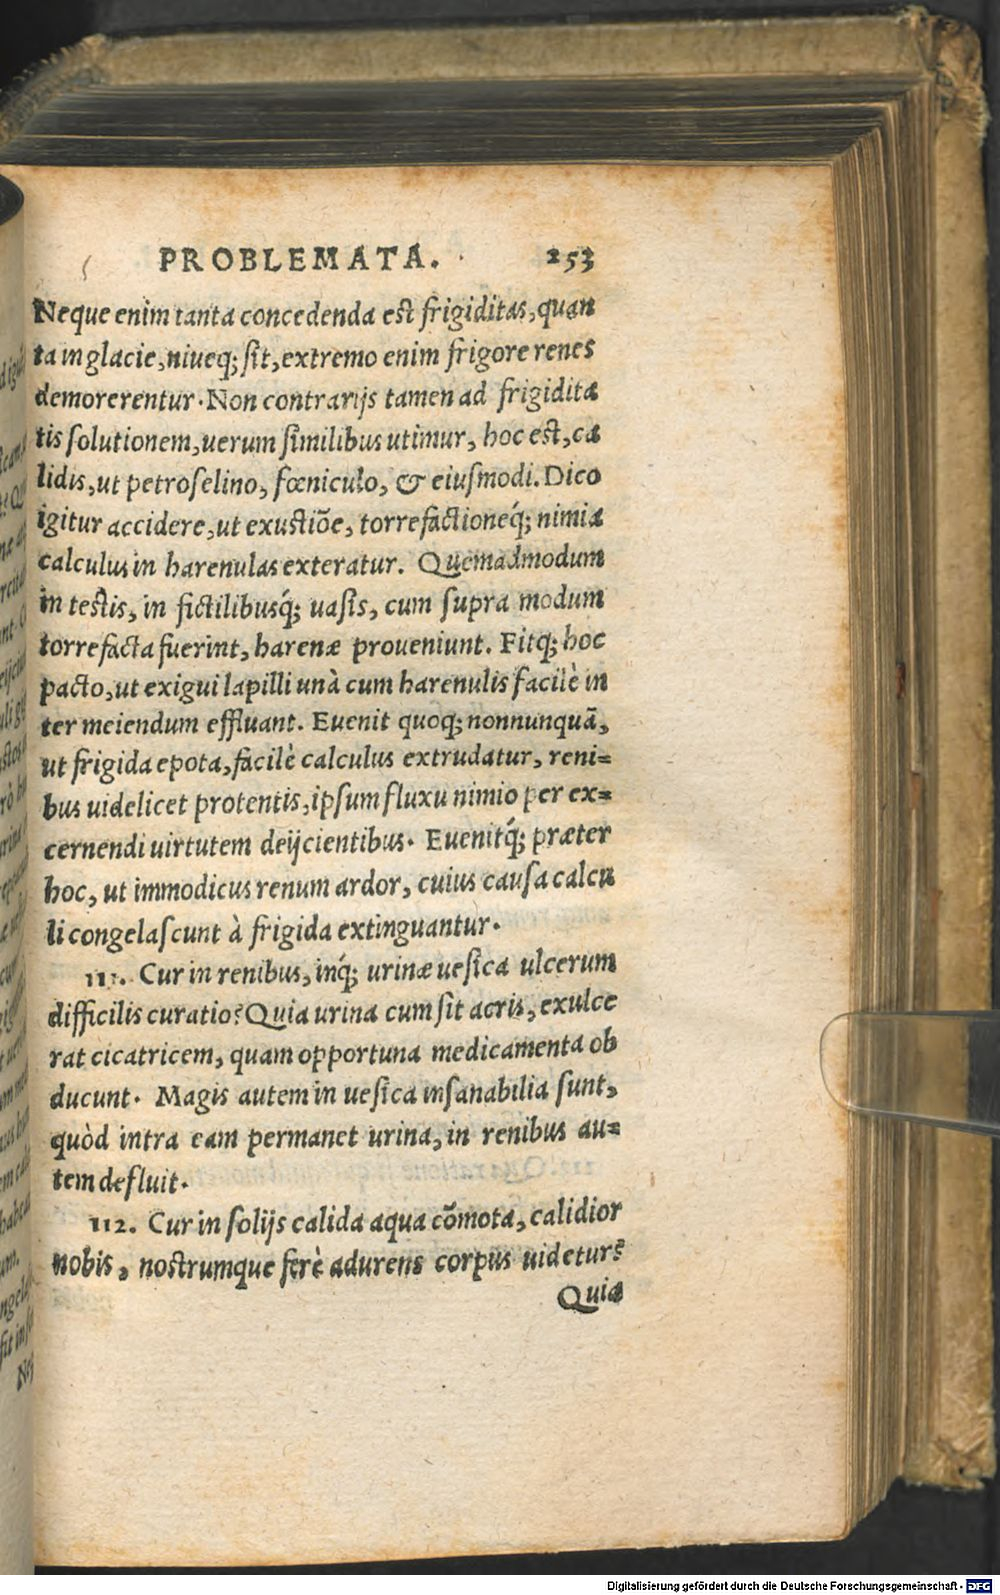 PROBLEMATA. 253
Neque enim tanta concedenda est frigiditas, quan
ta in glacie, niueq; sit, extremo enim frigore renes
demorerentur. Non contrarijs tamen ad frigidita
tis solutionem, uerum similibus utimur, hoc est, ca
lidis, ut petroselino, fœniculo, & eiusmodi. Dico
igitur accidere, ut exustiõe, torrefactioneq́; nimia
calculus in harenulas exteratur. Quemadmodum
in testis, in fictilibusq́; uasis, cum supra modum
torrefacta fuerint, harenæ proueniunt. Fitq; hoc
pacto, ut exigui lapilli unà cum harenulis facilè in
ter meiendum effluant. Euenit quoq; nonnunquã,
ut frigida epota, facilè calculus extrudatur, reni=
bus uidelicet protentis, ipsum fluxu nimio per ex=
cernendi uirtutem deijcientibus. Euenitq́; præter
hoc, ut immodicus renum ardor, cuius causa calcu
li congelascunt à frigida extinguantur.
111. Cur in renibus, inq́; urinæ uesica ulcerum
difficilis curatio? Quia urina cum sit acris, exulce
rat cicatricem, quam opportuna medicamenta ob
ducunt. Magis autem in uesica insanabilia sunt,
quòd intra eam permanet urina, in renibus au=
tem defluit.
112. Cur in solijs calida aqua cõmota, calidior
nobis, nostrumque ferè adurens corpus uidetur?
Quia
Digitalisierung gefördert durch die Deutsche Forschungsgemeinschaft - DFG